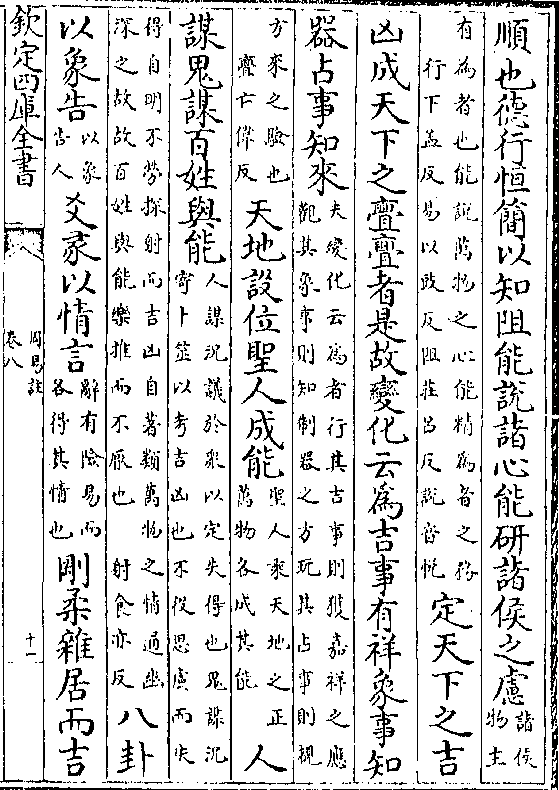 順也德行恒簡以知阻能說諸心能研諸侯之慮諸侯物主
有為者也能說萬物之心能精為者之務
行下孟反易以豉反阻莊呂反說音悅
定天下之吉
凶成天下之亹亹者是故變化云為吉事有祥象事知
器占事知來
夫變化云為者行其吉事則獲嘉祥之應
觀其象事則知制器之方玩其占事則覩
方來之驗也
亹亡偉反
天地設位聖人成能
聖人乘天地之正
萬物各成其能
人
謀鬼謀百姓與能
人謀況議於衆以定失得也鬼謀況
寄卜筮以考吉凶也不役思慮而失
得自明不勞探射而吉凶自著類萬物之情通幽
深之故故百姓與能樂推而不厭也 射食亦反
八卦
以象告
以象
告人
爻彖以情言
辭有險易而
各得其情也
剛柔雜居而吉
欽定四庫全書
周易註
卷八
十一